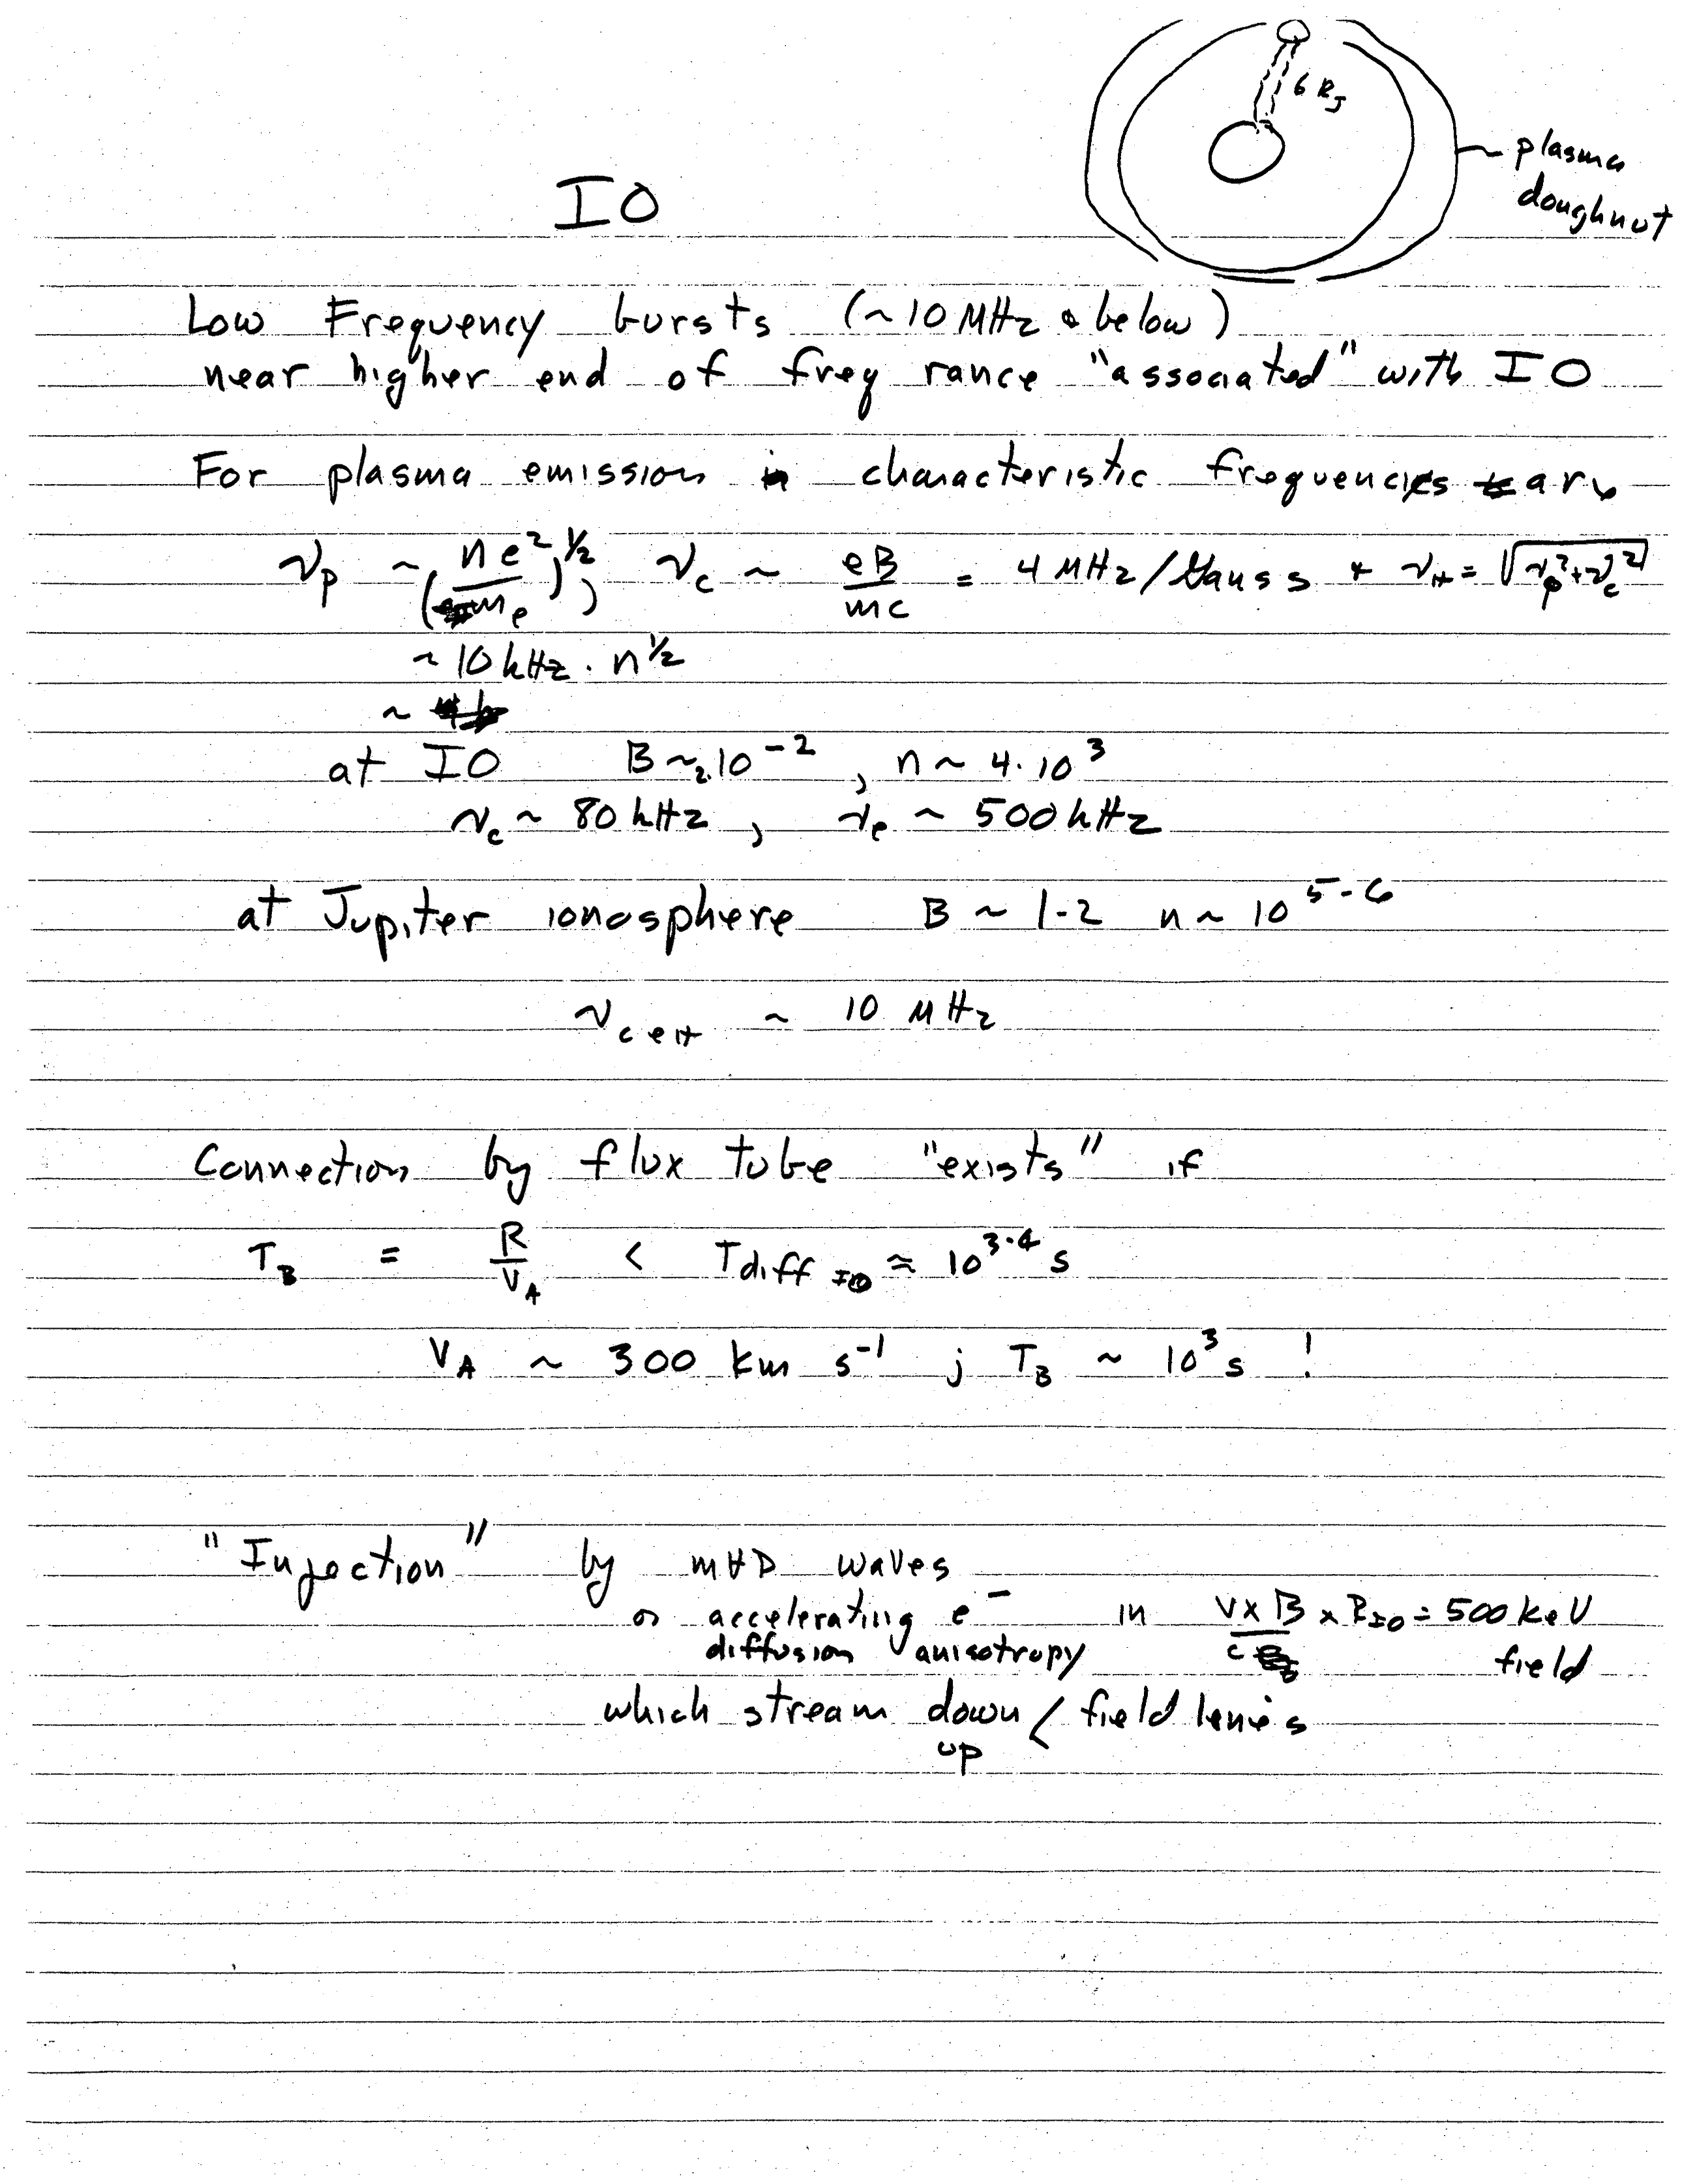 6 RJ
~ plasma
doughnut
IO
Low Frequency bursts (~10 MHz & below)
near higher end of freq rance "associated" with IO
For plasma emission characteristic frequencies are
νp ~ (ne²/me)^½ νc ~ eB/mc = 4 MHz/Gauss + νH = √(νp²+νc²)
~ 10 kHz · n^½
~
at IO B ~ 2·10⁻² , n ~ 4·10³
νc ~ 80 kHz , νp ~ 500 kHz
at Jupiter ionosphere B ~ 1-2 n ~ 10⁵⁻⁶
ν ~ 10 MHz
Connection by flux tube "exists" if
TB = R/VA < Tdiff IO ≈ 10³⁻⁴ s
VA ~ 300 km s⁻¹ ; TB ~ 10³ s !
"Injection" by MHD waves
or accelerating e⁻ in V×B/c × RIO = 500 keV
diffusion anisotropy field
which stream down / field lines
up